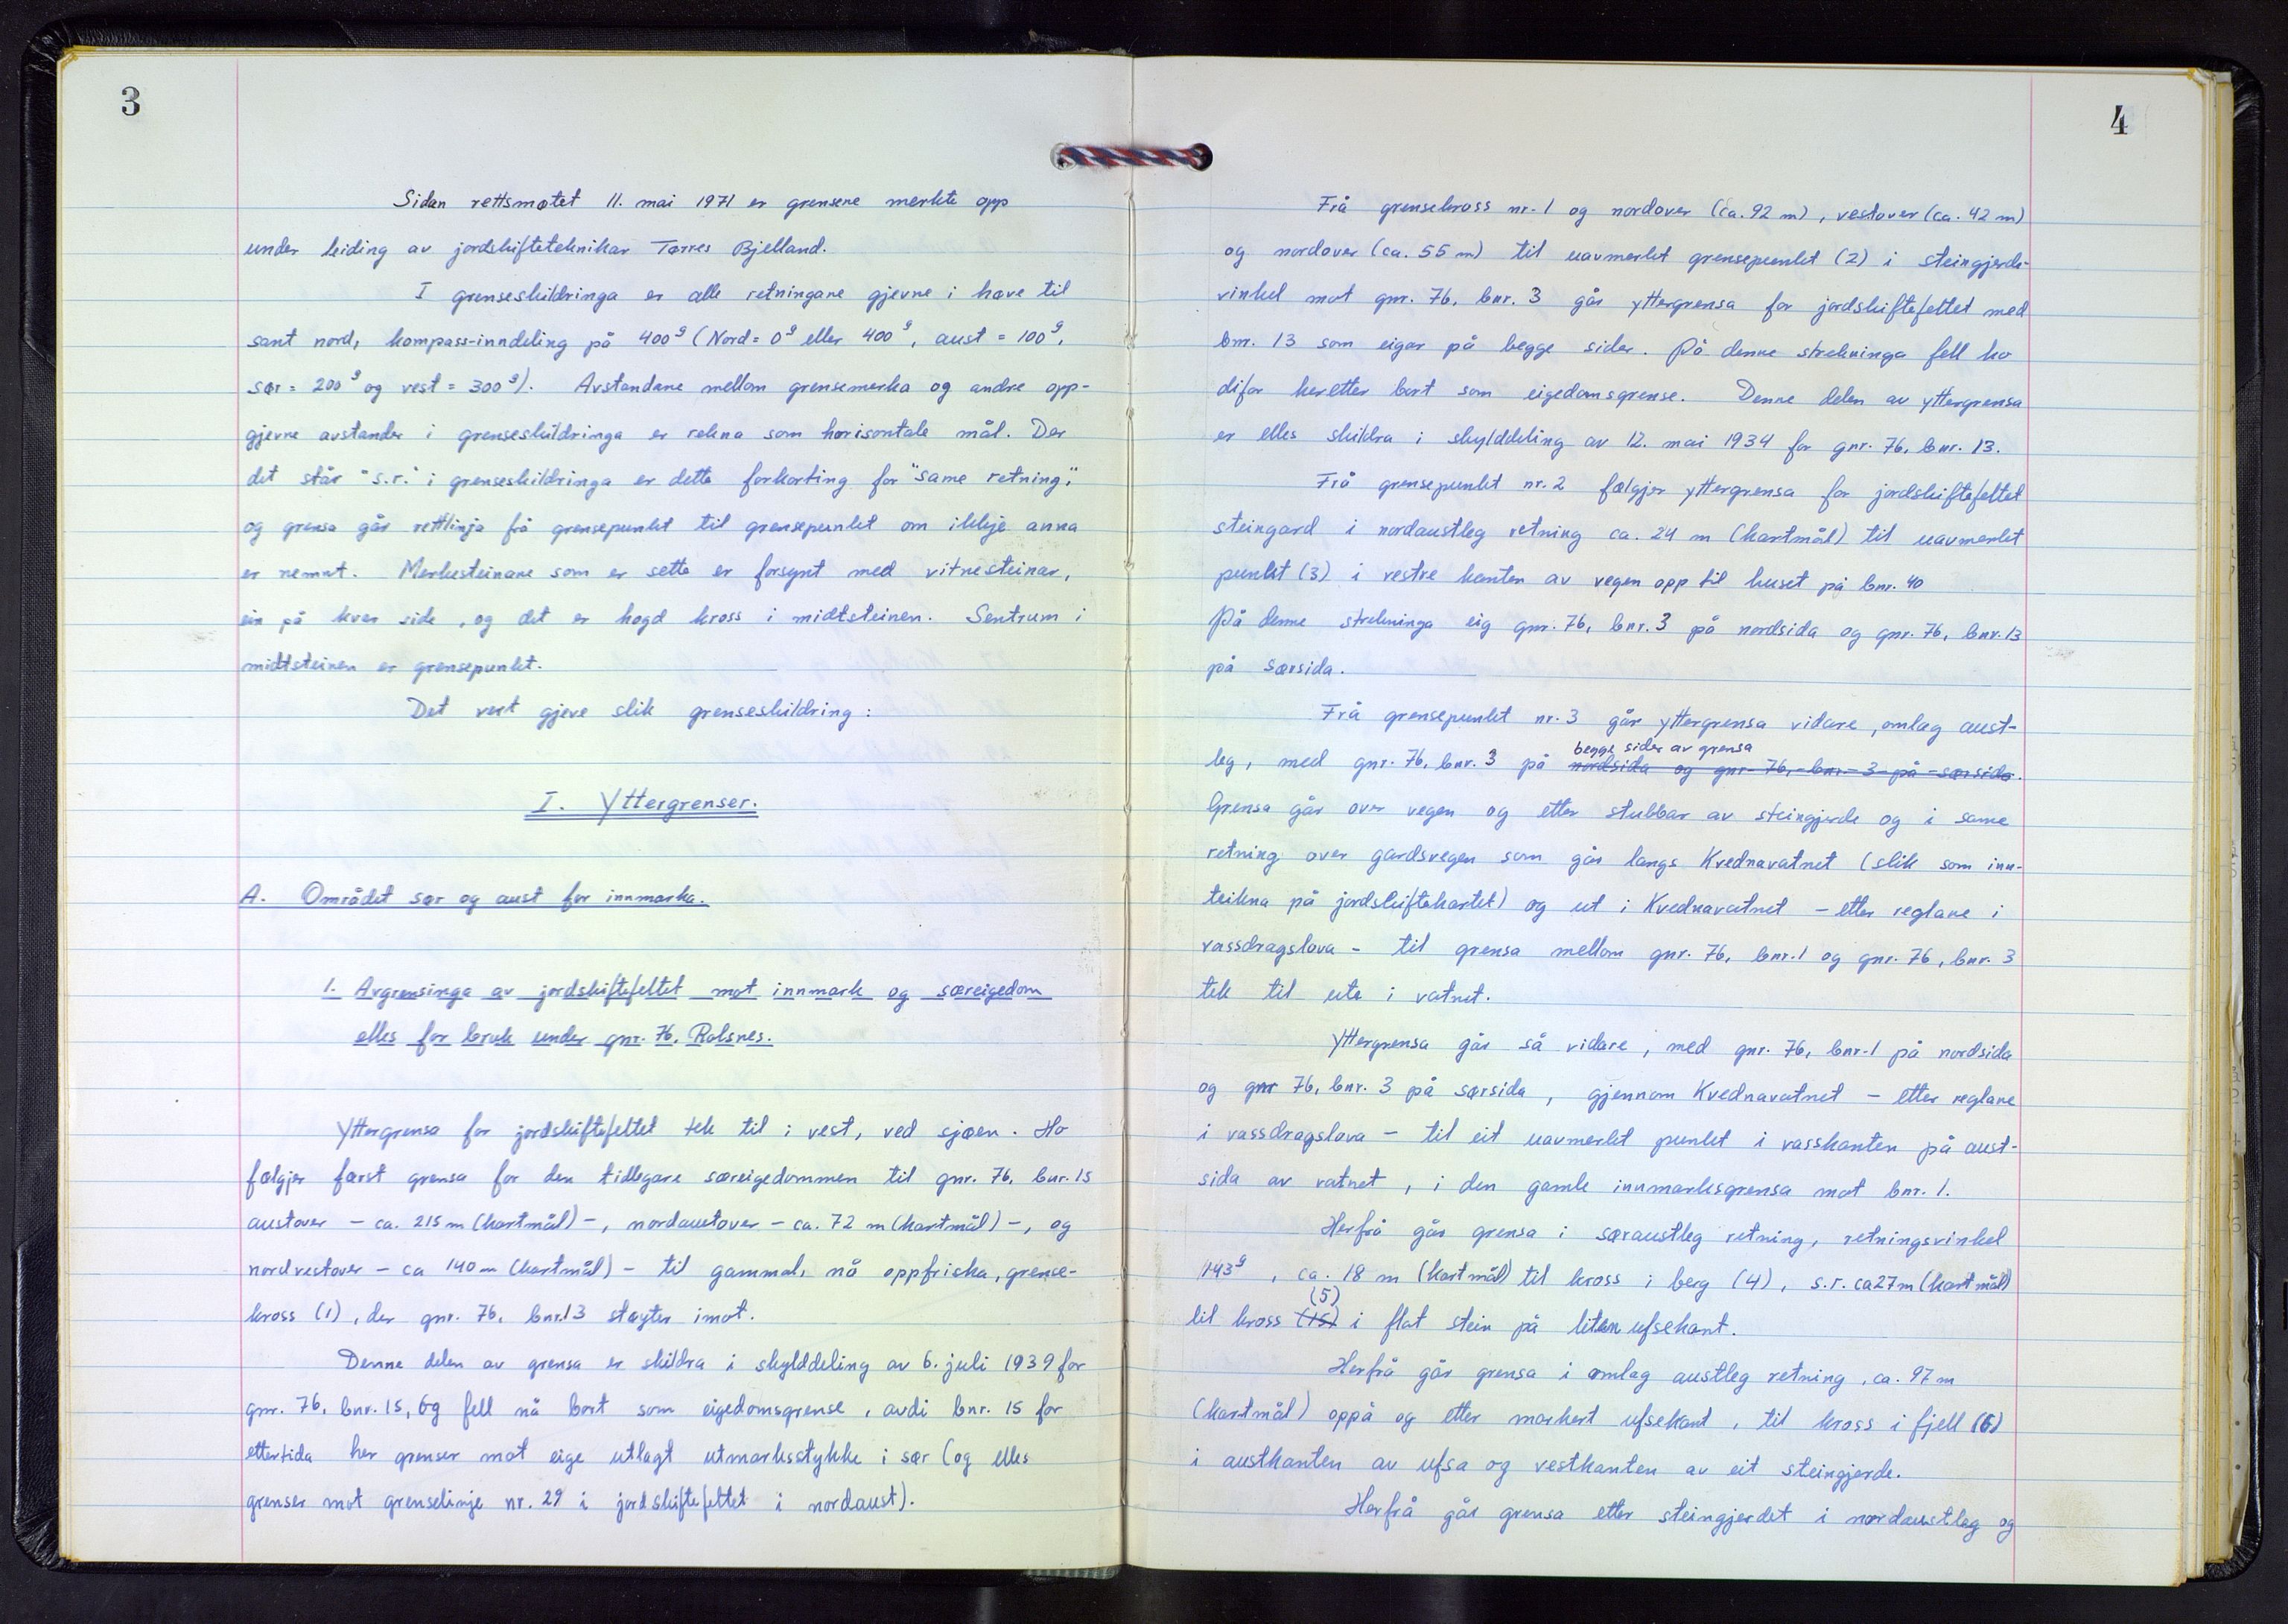 3
Sidan rettsmøtet 11. mai 1971 er grensene merkte opp
under leiing av jordskifteteknikar Tørres Bjelland.
I grenseskildringa er alle retningane gjevne i høve til
sant nord, kompass-inndeling på 400g (Nord = 0g eller 400g, aust = 100g,
sør = 200g og vest = 300g). Avstandane mellom grensemerka og andre opp-
gjevne avstander i grenseskildringa er rekna som horisontale mål. Der
det står "s.r." i grenseskildringa er dette forkorting for "same retning",
og grensa går rettlinja frå grensepunkt til grensepunkt om ikkje anna
er nemnt. Merkesteinane som er sette er forsynt med vitnesteinar,
ein på kvar side, og det er hogd kross i midtsteinen. Sentrum i
midtsteinen er grensepunkt.
Det vert gjeve slik grenseskildring:
I. Yttergrenser.
A. Området sør og aust for innmarka.
1. Avgrensinga av jordskiftefeltet mot innmark og særeigedom
elles for bruk under gnr. 76, Rolsnes.
Yttergrensa for jordskiftefeltet tek til i vest, ved sjøen. Ho
følgjer først grensa for den tidlegare særeigedommen til gnr. 76, bnr. 15
austover - ca. 215 m (kartmål) -, nordaustover - ca. 72 m (kartmål) -, og
nordvestover - ca 140 m (kartmål) - til gammal, nå oppfriska, grense-
kross (1), der gnr. 76, bnr. 13 støyter imot.
Denne delen av grensa er skildra i skylddeling av 6. juli 1939 for
gnr. 76, bnr. 15, og fell nå bort som eigedomsgrense, avdi bnr. 15 for
ettertida her grenser mot eige utlagt utmarksstykke i sør (og elles
grenser mot grenselinje nr. 29 i jordskiftefeltet i nordaust).
4
Frå grensekross nr. 1 og nordover (ca. 92 m), vestover (ca. 42 m)
og nordover (ca. 55 m) til uavmerkt grensepunkt (2) i steingjerde-
vinkel mot gnr. 76, bnr. 3 går yttergrensa for jordskiftefeltet med
bnr. 13 som eigar på begge sider. På denne strekninga fell ho
difor heretter bort som eigedomsgrense. Denne delen av yttergrensa
er elles skildra i skylddeling av 12. mai 1934 for gnr. 76, bnr. 13.
Frå grensepunkt nr. 2 følgjer yttergrensa for jordskiftefeltet
steingard i nordaustleg retning ca. 24 m (kartmål) til uavmerkt
punkt (3) i vestre kanten av vegen opp til huset på bnr. 40
På denne strekninga eig gnr. 76, bnr. 3 på nordsida og gnr. 76, bnr. 13
på sørsida.
Frå grensepunkt nr. 3 går yttergrensa vidare, omlag aust-
begge sider av grensa
leg, med gnr. 76, bnr. 3 på nordsida og gnr. 76, bnr. 3 på sørsida.
Grensa går over vegen og etter stubbar av steingjerde og i same
retning over gardsvegen som går langs Kvednavatnet (slik som inn-
teikna på jordskiftekartet) og ut i Kvednavatnet - etter reglane i
vassdragslova - til grensa mellom gnr. 76, bnr. 1 og gnr. 76, bnr. 3
tek til ute i vatnet.
Yttergrensa går så vidare, med gnr. 76, bnr. 1 på nordsida
og gnr 76, bnr. 3 på sørsida, gjennom Kvednavatnet - etter reglane
i vassdragslova - til eit uavmerkt punkt i vasskanten på aust-
sida av vatnet, i den gamle innmarksgrensa mot bnr. 1.
Herfrå går grensa i søraustleg retning, retningsvinkel
143g, ca. 18 m (kartmål) til kross i berg (4), s.r. ca 27 m (kartmål)
(5)
til kross (15) i flat stein på liten ufsekant.
Herfrå går grensa i omlag austleg retning, ca. 97 m
(kartmål) oppå og etter markert ufsekant, til kross i fjell (6)
i austkanten av ufsa og vestkanten av eit steingjerde.
Herfrå går grensa etter steingjerdet i nordaustleg og